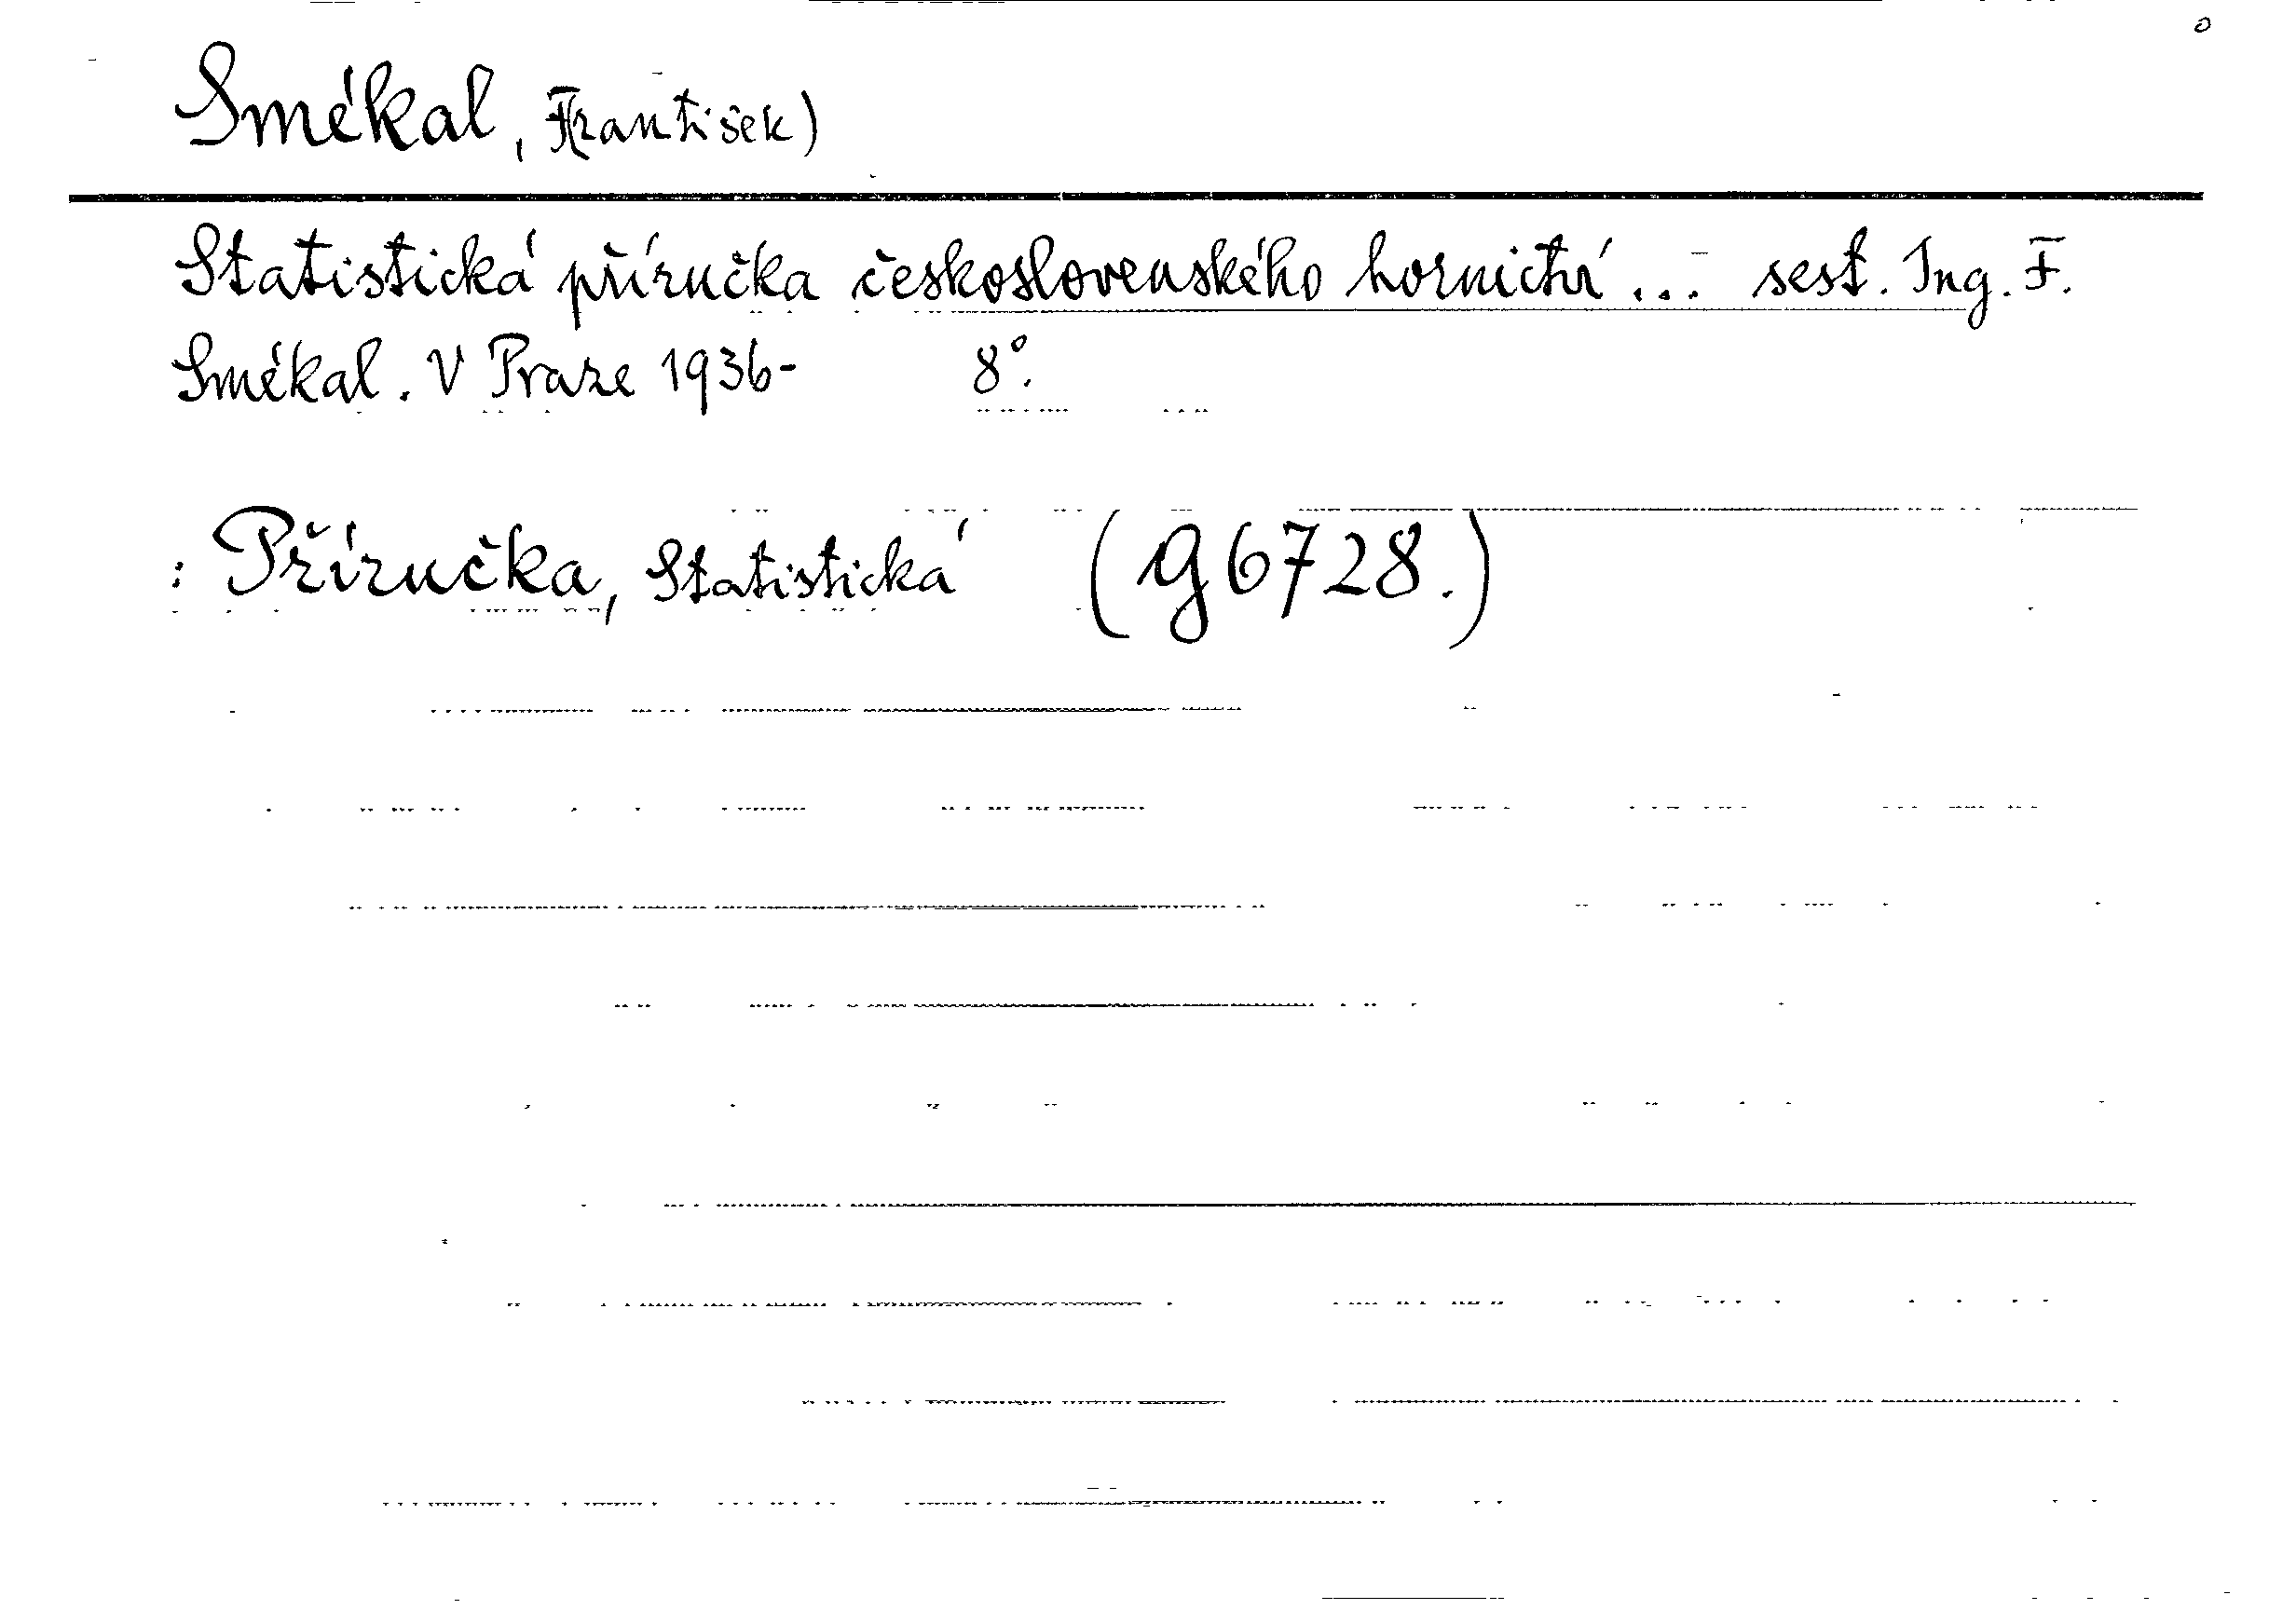 Smékal, F(rantišek)
Statistická příručka československého hornictví ... sest. Ing. F.
Smékal. V Praze 1936- 8°.
: Příručka, Statistická (g 6728.)